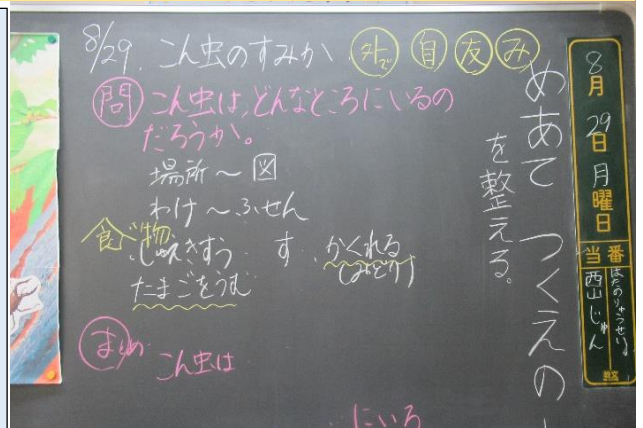 8/29. こん虫のすみか 外で 自 友 み
問 こん虫は、どんなところにいるの
だろうか。
場所～図
わけ～ふせん
食べ物
じゅえきすう す かくれる
たまごをうむ
まとめ こん虫は
にいる
めあて つくえの
を整える。
8月29日月曜日
当番
西山じゅん